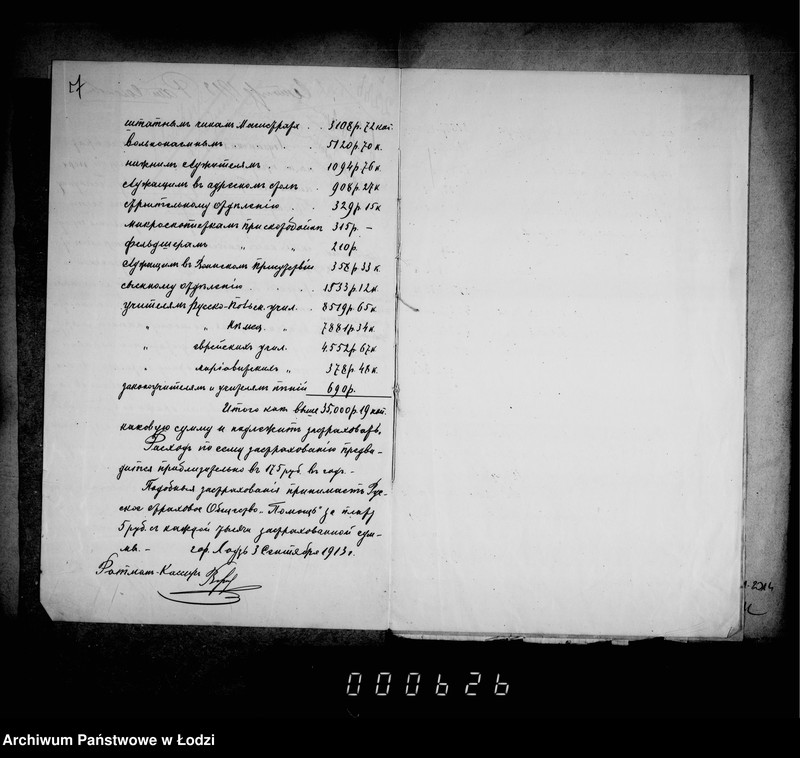 7
штатнымъ чинамъ Магистрата . . 3108 р. 72 коп.
вольнонаемнымъ " . . 5120 р. 70 к.
нижнимъ служителямъ . . . 1094 р. 76 к.
служащимъ въ адресномъ столѣ . 908 р. 27 к
строительному отдѣленію . . 329 р. 15 к
микроскописткамъ при скотобойнѣ 315 р. –
фельдшерамъ " " 210 р.
служащимъ въ Воинскомъ присутствіи 358 р. 33 к.
военному отдѣленію . . . . 1533 р. 12 к.
учителямъ Русско-Польск. учил. . 8519 р. 65 к.
" " Нѣмец. " 7881 р. 34 к.
" еврейскихъ учил. 4.552 р. 67 к
" маріавитскихъ " 378 р. 48 к.
законоучителямъ и учителямъ пѣнія 690 р.
Итого какъ выше 35,000 р. 19 коп.
каковую сумму и надлежитъ застраховать.
Расходъ по сему застрахованію предви-
дится приблизительно въ 175 руб. въ годъ. –
Подобныя застрахованія принимаетъ Рус-
ское страховое Общество „Помощь" за плату
5 руб. съ каждой тысячи застрахованной сум-
мы. – гор. Лодзь 3 Сентября 1913 г.
Ратманъ-Кассиръ
000626
Archiwum Państwowe w Łodzi